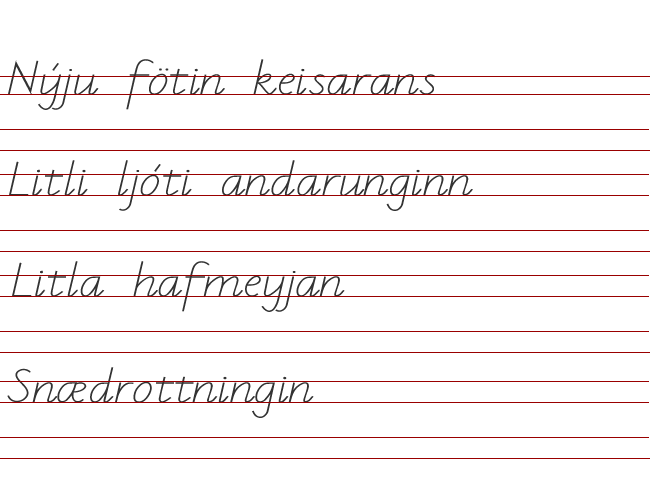 Nýju fötin keisarans
Litli ljóti andarunginn
Litla hafmeyjan
Snædrottningin